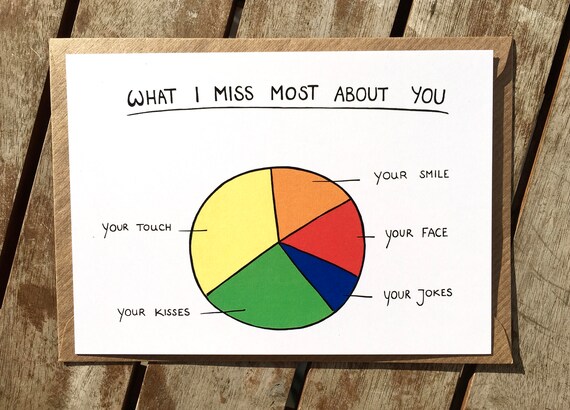 WHAT I MISS MOST ABOUT YOU
YOUR SMILE
YOUR TOUCH
YOUR FACE
YOUR JOKES
YOUR KISSES